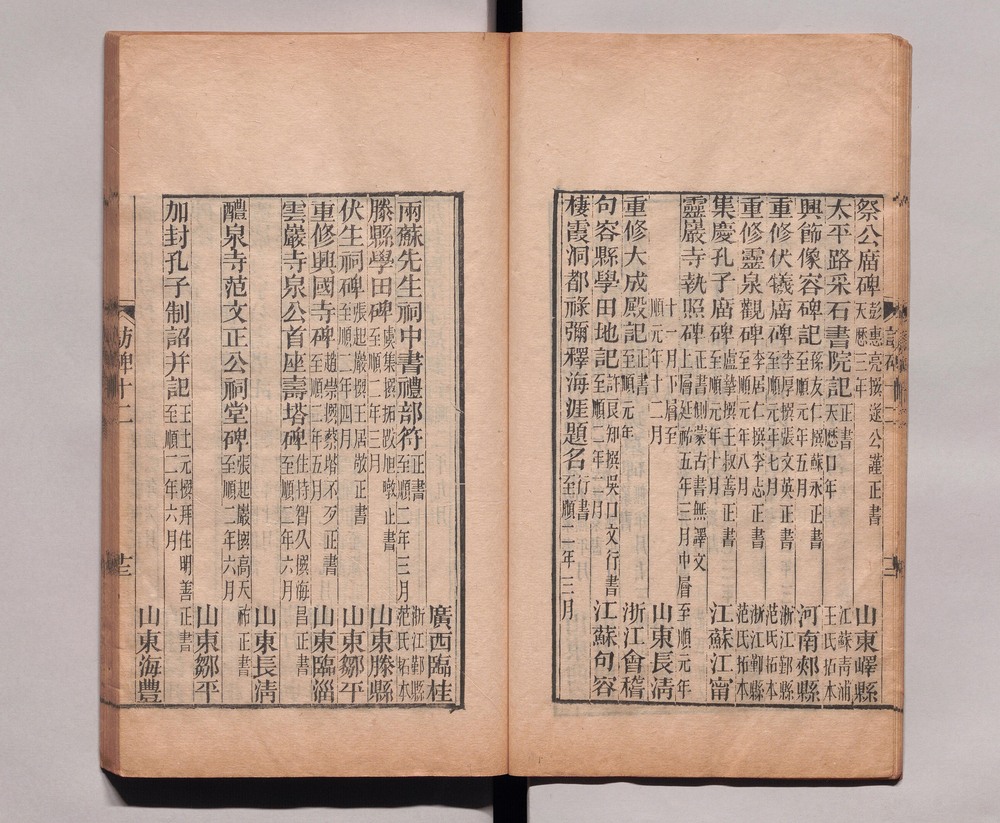 祭公庿碑 彭惠亮撰逯公謹正書 天歷三年 山東嶧縣
太平路采石書院記 正書 天歷口年 江蘇青浦 王氏拓本
興節像容碑記 孫友仁撰蘇永正書 至順元年五月 河南郟縣
重修伏犧庿碑 李厚撰張文英正書 至順元年七月 浙江鄞縣 范氏拓本
重修靈泉觀碑 李居仁撰李志正書 至順元年八月 浙江鄞縣 范氏拓本
集慶孔子庿碑 盧摯撰王叔善正書 至順元年十月 江蘇江甯
靈巖寺執照碑 正書側蒙古書無譯文 上層延祐五年三月中層至順元年
十一月下層至 順元年十二月 山東長清
重修大成殿記 正書 至順元年 浙江會稽
句容縣學田地記 許良知撰吳口文行書 至順二年二月 江蘇句容
棲霞洞都祿彌釋海涯題名 行書 至順二年三月
廣西臨桂
兩蘇先生祠中書禮部符 正書 至順二年三月 浙江鄞縣 范氏拓本
滕縣學田碑 虞集撰 旭暾正書 至順二年三月 山東滕縣
伏生祠碑 張起巖撰王居敬正書 至順二年四月 山東鄒平
重修興國寺碑 趙崇撰蔡塔不歹正書 至順二年五月 山東臨淄
雲巖寺泉公首座壽塔碑 住持智久撰海昌正書 至順二年六月
山東長清
醴泉寺范文正公祠堂碑 張起巖撰高天祐正書 至順二年六月
山東鄒平
加封孔子制詔并記 王士元撰拜住明善正書 至順二年六月 山東海豐
訪碑十二
十三